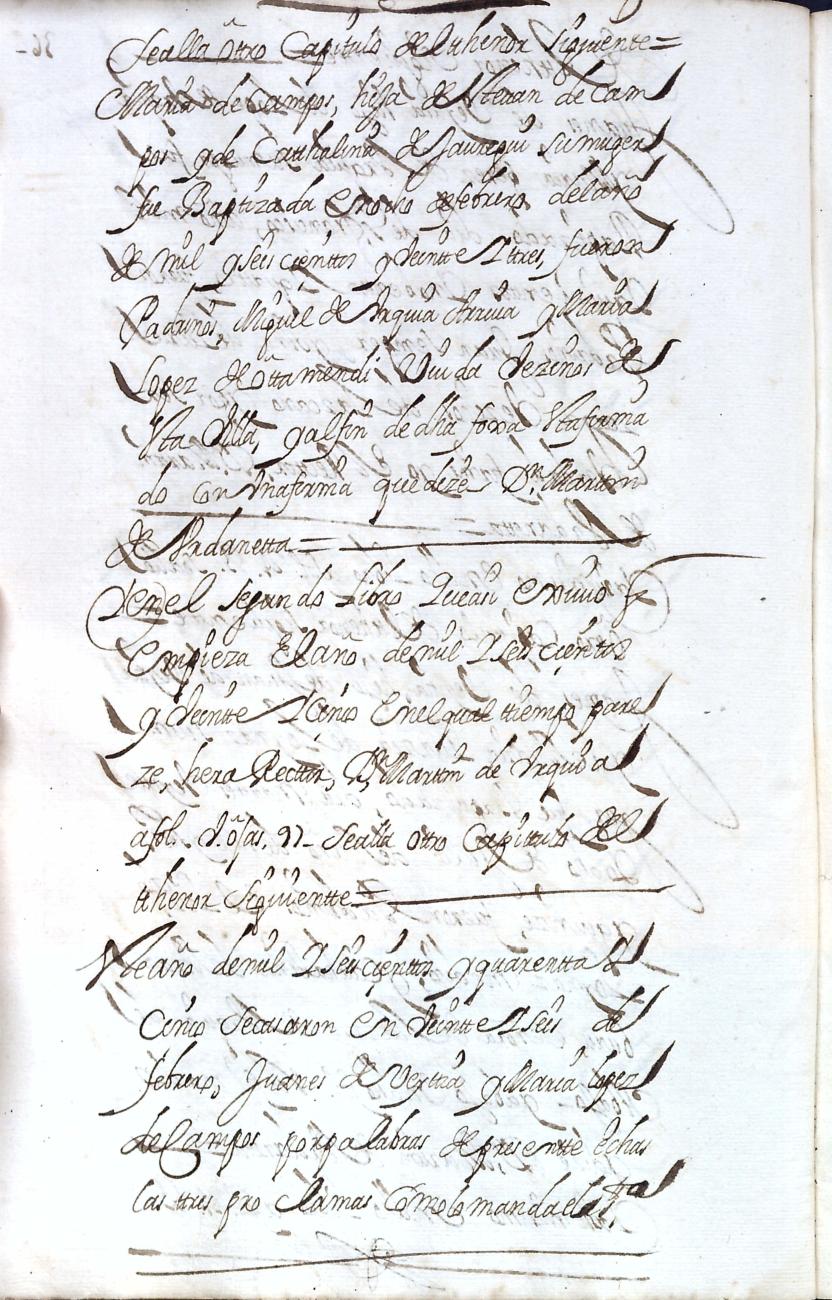 se alla otro Capitulo del thenor siguiente=
Maria de Campos, hija de Esteuan de Cam
pos y de Catthalina de Jauregui su muger
fue Baptizada en ocho de febrero del año
de mil y seis cienttos y Veintte Y ttres, fueron
Padrinos, Miguel de Vrquia y Maria
lopez de Ottamendi Viuda Vezinos de
esta Villa, y al fin de dha foxa esta firma
do con Vna firma que dize Dn. Martin
de Vrdanetta=
Y en el segundo libro Que asi exiuio
empieza El año de mil Y seis cienttos
y Veintte Y Cinco en el qual tiempo pare
ze, hera Rector, Dn. Martin de Vrquiola
a fol. 97 se alla otro Capittulo del
thenor Siguientte=
Este año de mil Y seis cienttos y quarentta Y
Cinco se casaron en Veintte Y seis de
febrero, Juanes de y Maria lopez
de Campos por palabras de presentte echas
las ttres pro clamas Como lo manda el